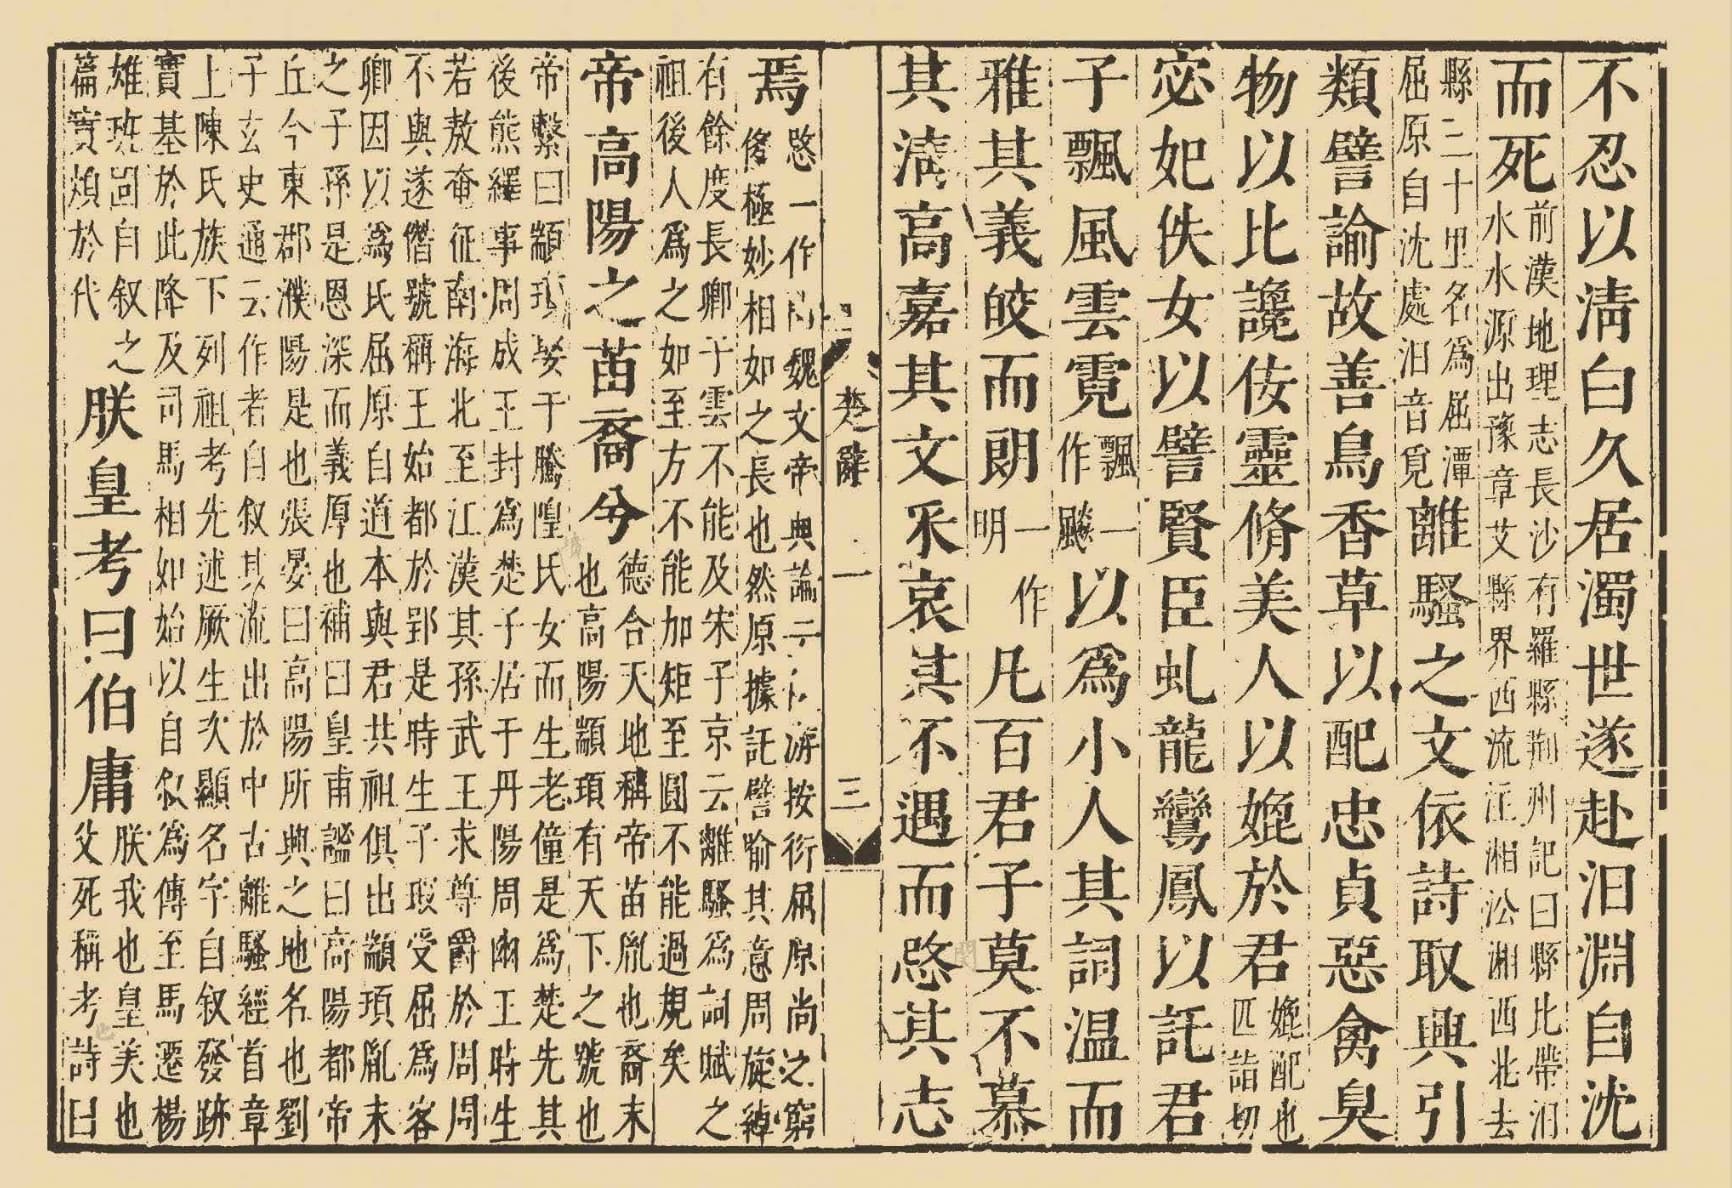 不忍以淸白久居濁世遂赴汨淵自沈
而死
前漢地理志長沙有羅縣荆州記曰縣北帶汨
水水源出豫章艾縣界西流注湘㳂湘西北去
縣三十里名爲屈潭
屈原自沈處汨音覓
離騷之文依詩取興引
類譬諭故善鳥香草以配忠貞惡禽臭
物以比讒佞靈脩美人以媲於君
媲配也
匹詣切
宓妃佚女以譬賢臣虬龍鸞鳳以託君
子飄風雲霓
飄一
作飈
以爲小人其詞温而
雅其義皎而朗
一作
明
凡百君子莫不慕
其淸高嘉其文采哀其不遇而愍其志
楚辭一 三
焉
愍一作閔魏文帝典論云優游按衍屈原尚之窮
侈極妙相如之長也然原據託譬喻其意周旋綽
有餘度長卿子雲不能及宋子京云離騷爲詞賦之
祖後人爲之如至方不能加矩至圓不能過規矣
帝高陽之苗裔兮
德合天地稱帝苗胤也裔末
也高陽顓頊有天下之號也
帝繫曰顓頊娶于騰隍氏女而生老僮是爲楚先其
後熊繹事周成王封爲楚子居于丹陽周幽王時生
若敖奄征南海北至江漢其孫武王求尊爵於周周
不與遂僭號稱王始都於郢是時生子瑕受屈爲客
卿因以爲氏屈原自道本與君共祖俱出顓頊胤末
之子孫是恩深而義厚也補曰皇甫謐曰高陽都帝
丘今東郡濮陽是也張晏曰高陽所興之地名也劉
子玄史通云作者自叙其流出於中古離騷經首章
上陳氏族下列祖考先述厥生次顯名字自叙發跡
實基於此降及司馬相如始以自叙爲傳至馬遷楊
雄班固自叙之
篇實煩於代
朕皇考曰伯庸
朕我也皇美也
父死稱考詩曰